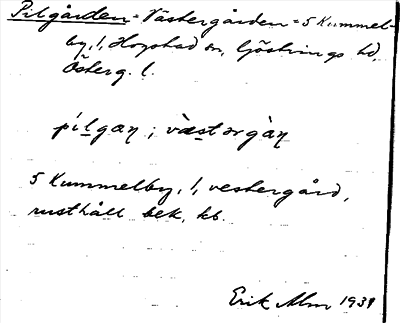 Pilgården = Västergården = 5 Kummel-
by, 1, Hogstad sn, Göstrings hd,
Österg. l.
pìlgaɳ ; væ̀stərgàɳ
5 Kummelby, 1, vestergård,
rusthåll bek. kb.
Erik Alm 1939